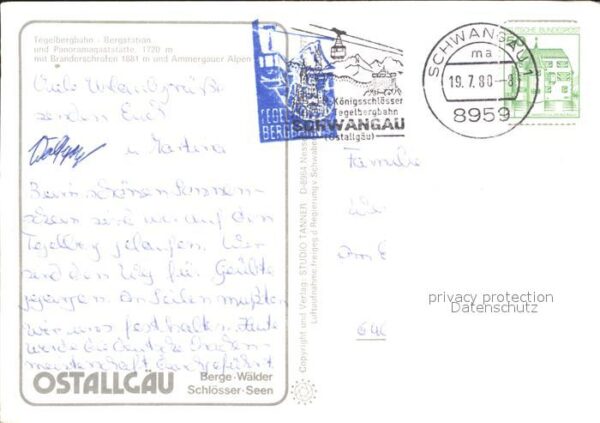 Tegelbergbahn - Bergstation
und Panoramagaststätte, 1720 m
mit Branderschrofen 1881 m und Ammergauer Alpen
Viele Urlaubsgrüße
senden Euch
Wolfgang u. Martina
Beim schönen Sonnen-
schein sind wir auf den
Tegelberg gelaufen. Wir
sind den Weg für Geübte
gegangen. An Seilen mußten
wir uns festhalten. Heute
wurde die Deutsche Drachen-
meisterschaft
OSTALLGÄU
Berge · Wälder
Schlösser · Seen
TEGEL
BERGBAHN
Königsschlösser
Tegelbergbahn
SCHWANGAU
(Ostallgäu)
SCHWANGAU 1
ma
19.7.80-8
8959
DEUTSCHE BUNDESPOST
Copyright und Verlag: STUDIO TANNER
Luftaufnahme freigeg. d. Regierung v. Schwaben
Familie
privacy protection
Datenschutz